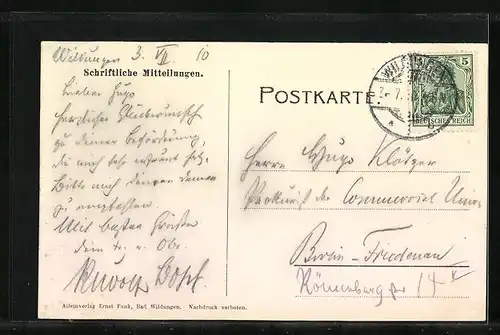 Wildungen 3. VII 10
Schriftliche Mitteilungen.
Lieber Hugo
Herzlichen Glückwunsch
zu Deiner Beförderung,
die mich sehr erfreut hat.
Bitte mich Deinen
zu empfehlen.
Mit besten Grüßen
Dein
Rudolf
Alleinverlag Ernst Funk, Bad Wildungen. Nachdruck verboten.
POSTKARTE.
WILDUNGEN
5
DEUTSCHES REICH
Herrn Hugo Klötzer
Prokurist der Commercial Union
Berlin-Friedenau
14